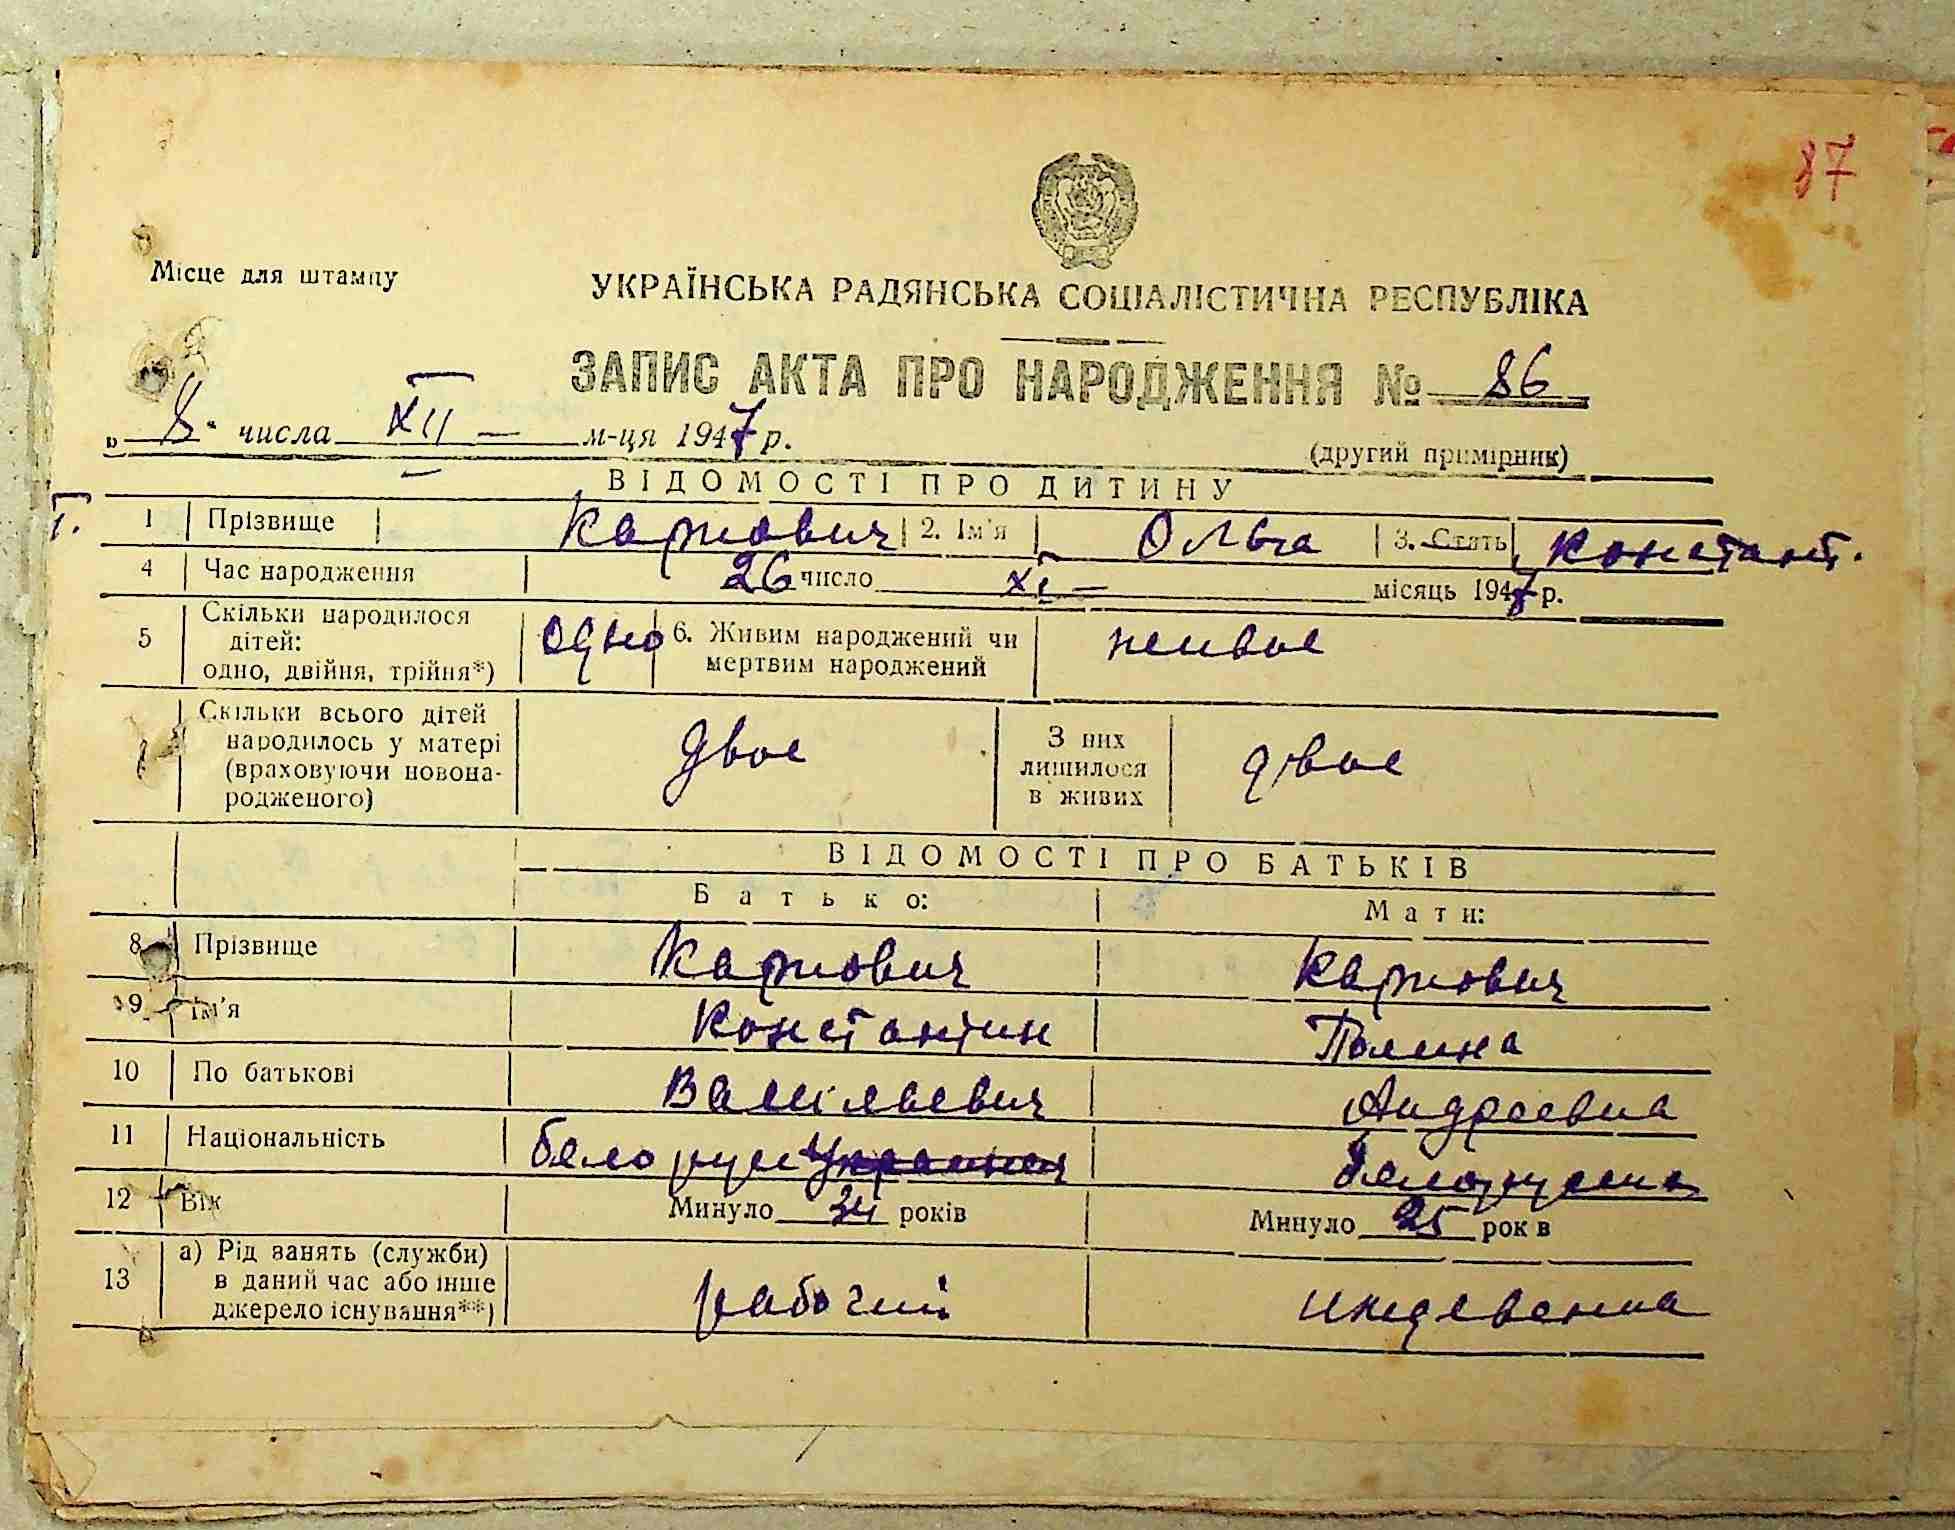 87
Місце для штампу
УКРАЇНСЬКА РАДЯНСЬКА СОЦІАЛІСТИЧНА РЕСПУБЛІКА
ЗАПИС АКТА ПРО НАРОДЖЕННЯ № 86
„ 8 " числа XII — м-ця 1947 р.
(другий примірник)
ВІДОМОСТІ ПРО ДИТИНУ
1 Прізвище Карпович 2. Ім'я Ольга 3. Стать Констант.
4 Час народження 26 число XI — місяць 1947 р.
5 Скільки народилося дітей: одно, двійня, трійня*) одно 6. Живим народжений чи мертвим народжений живое
Скільки всього дітей народилось у матері (враховуючи новонародженого) двое З них лишилося в живих двое
ВІДОМОСТІ ПРО БАТЬКІВ
Батько: Мати:
8 Прізвище Карпович Карпович
9 Ім'я Константин Полина
10 По батькові Васильевич Андреевна
11 Національність белорус Украинец белоруска
12 Вік Минуло 34 років Минуло 25 рок в
13 а) Рід занять (служби) в даний час або інше джерело існування**) рабочий иждевенка